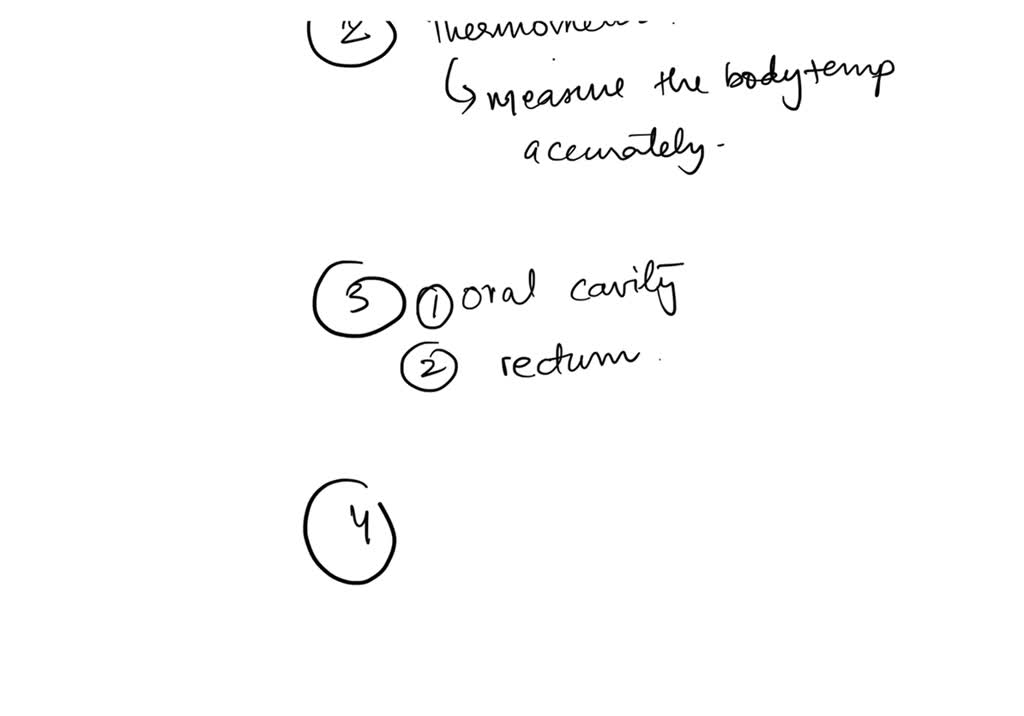 2 Thermome
↳ measure the body temp
accurately.
3 1 oral cavity
2 rectum.
4